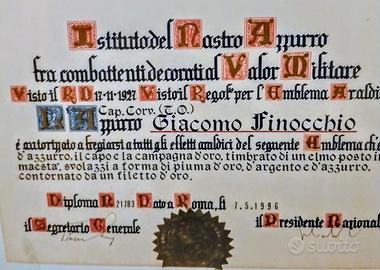 Istituto del Nastro Azzurro
fra combattenti decorati al Valor Militare
Visto il R D 17-11-1927 Visto il Regol° per l'Emblema Araldi
Cap. Corv. (T.O.)
Il N Azzurro Giacomo Finocchio
è autorizzato a fregiarsi a tutti gli effetti araldici del seguente Emblema ch'è
d'azzurro. il capo e la campagna d'oro, timbrato di un elmo posto in
maestà, svolazzi a forma di piuma d'oro, d'argento e d'azzurro.
contornato da un filetto d'oro.
Diploma N 21783 Dato a Roma, li 7.5.1996
il Segretario Generale il Presidente Nazional
subito